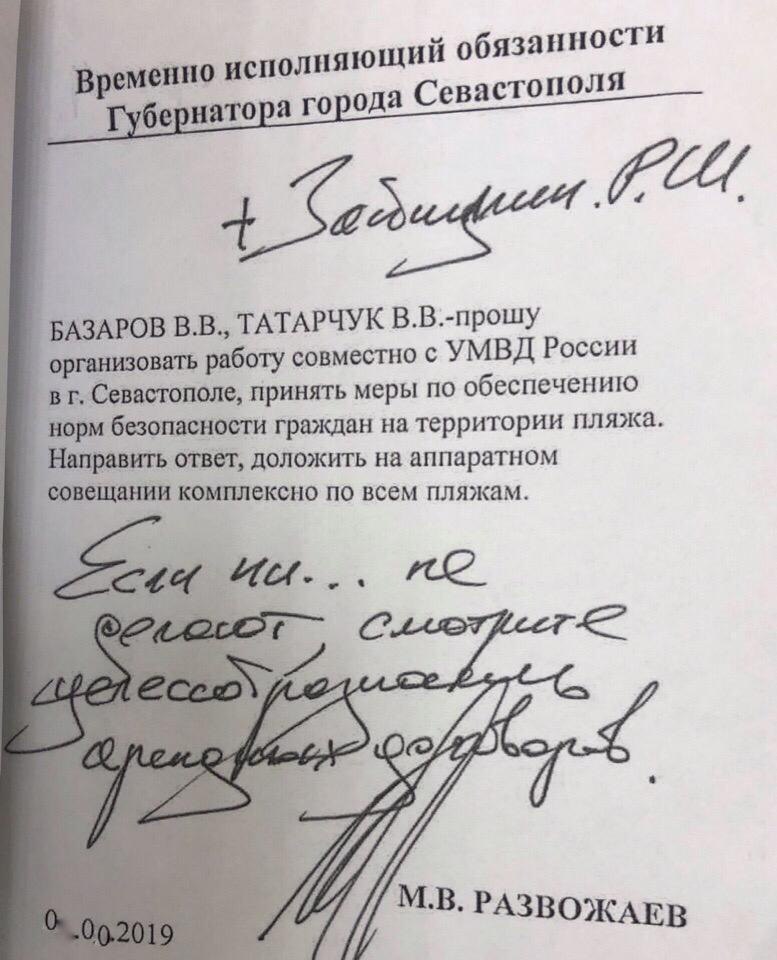 Временно исполняющий обязанности
Губернатора города Севастополя
+ Р.Ш.
БАЗАРОВ В.В., ТАТАРЧУК В.В.-прошу
организовать работу совместно с УМВД России
в г. Севастополе, принять меры по обеспечению
норм безопасности граждан на территории пляжа.
Направить ответ, доложить на аппаратном
совещании комплексно по всем пляжам.
Если ни... не
делают, смотрите
арендных договоров.
М.В. РАЗВОЖАЕВ
2019